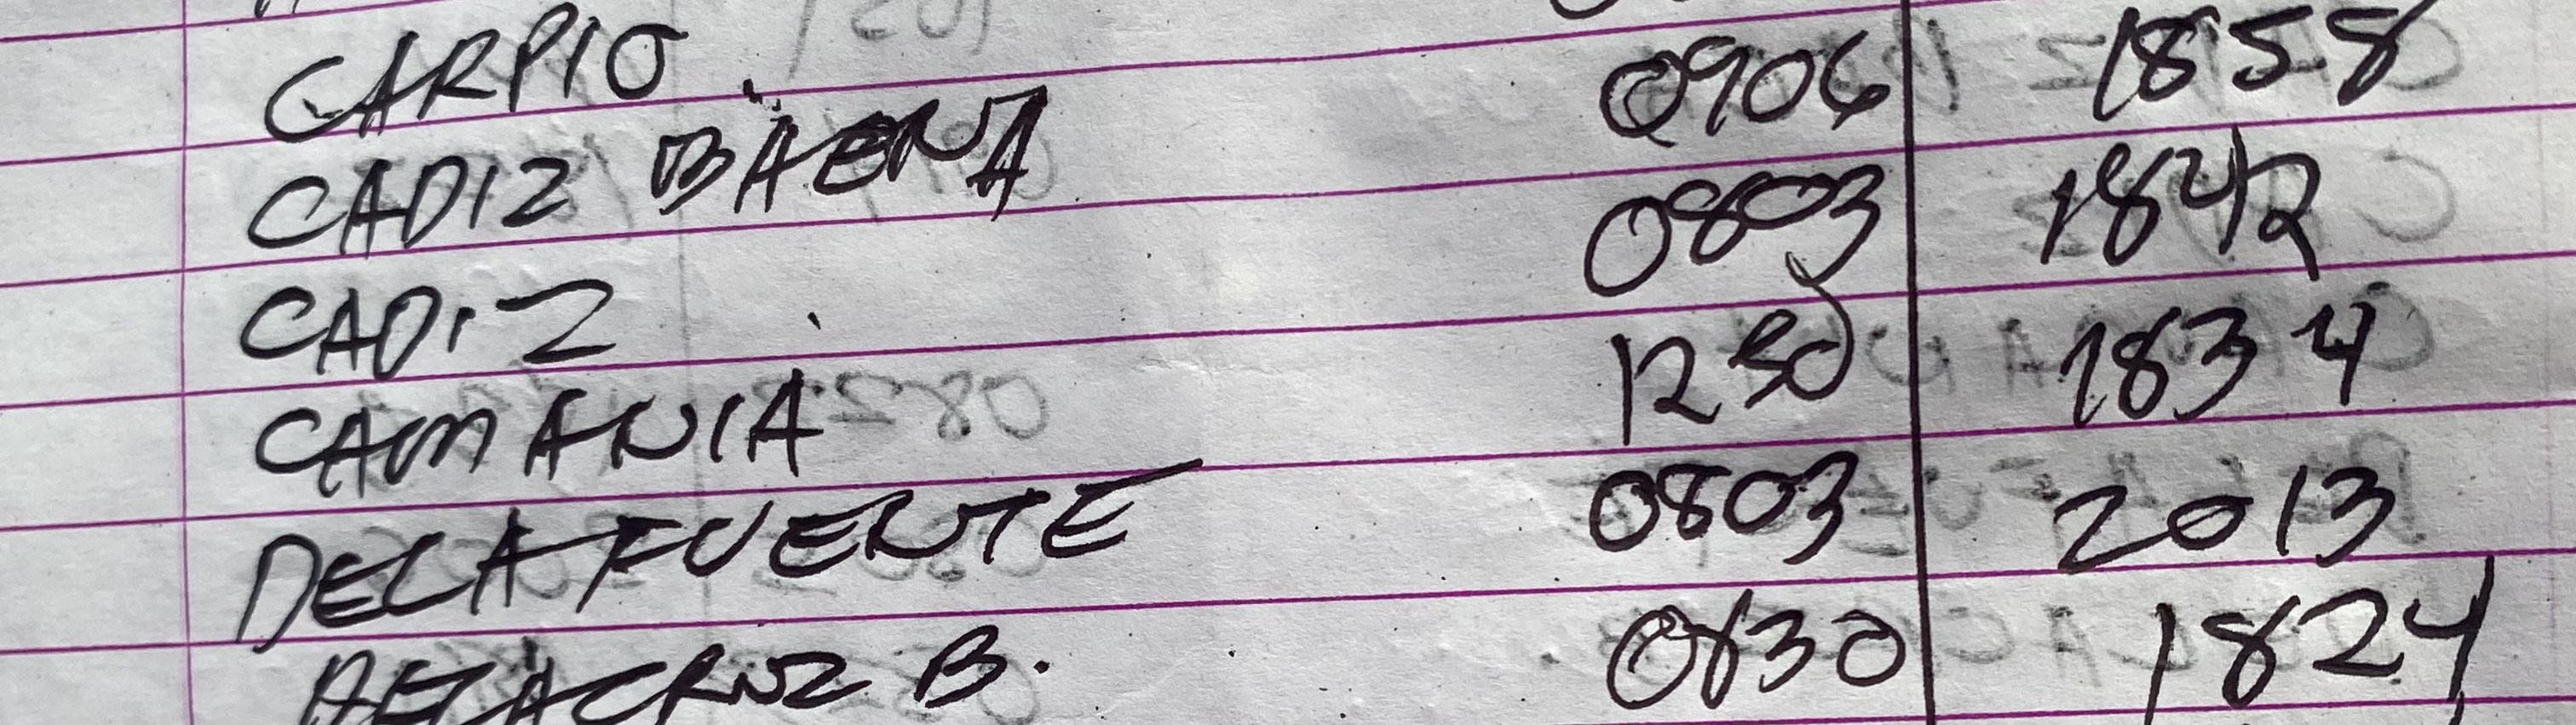 CARPIO 0906 1858
CADIZ BAENA 0803 1842
CADIZ 1250 1834
CAMANIA 0803 2013
DELA FUENTE 0830 1824
DELACRUZ B.